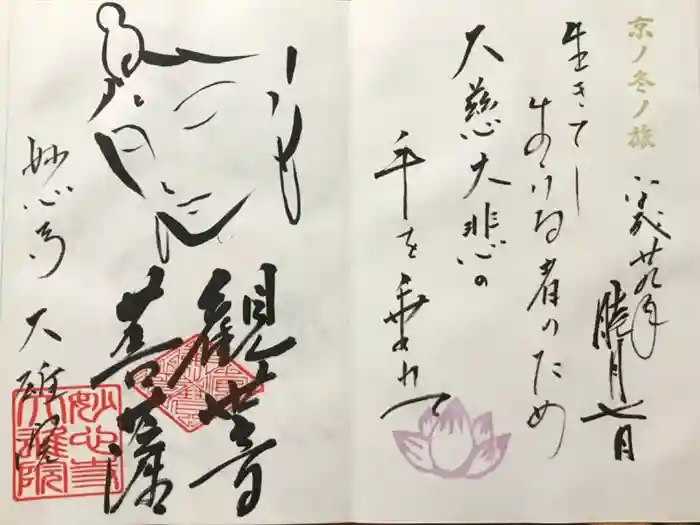 京ノ冬ノ旅
平成廿九年
睦月七日
生きてし
生ける者のため
大慈大悲の
手を垂れて
観世音
菩薩
妙心寺 大雄院
妙心寺
大雄院